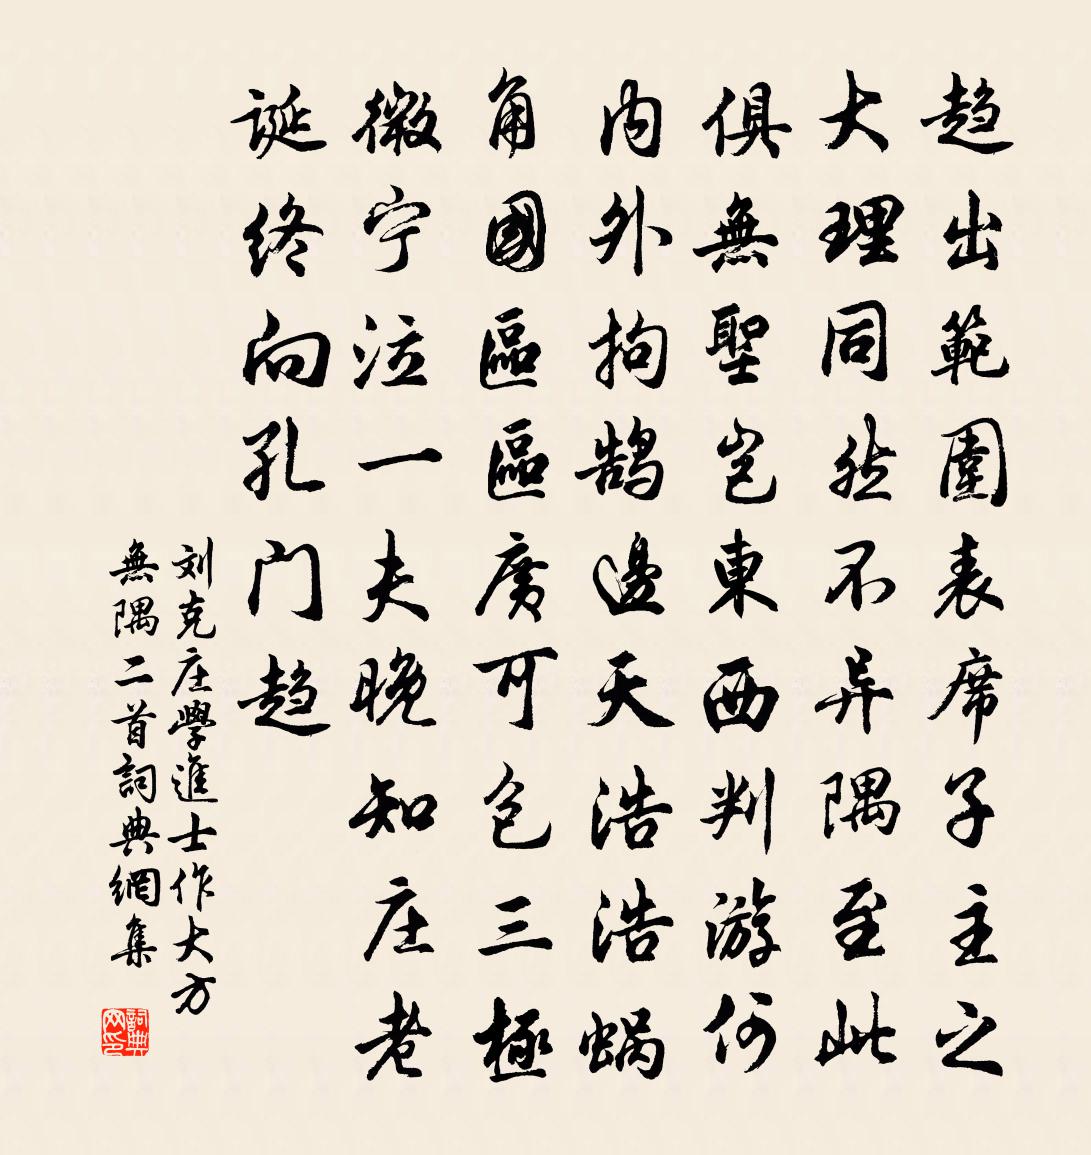 趋出範圍表席子主之
大理同然不异隅至此
俱無聖岂東西判游何
内外拘鹄邊天浩浩蜗
角國區區廣可包三極
微宁泣一夫晚知庄老
诞终向孔门趋
刘克庄學進士作大方
無隅二首詞典網集
詞典网印